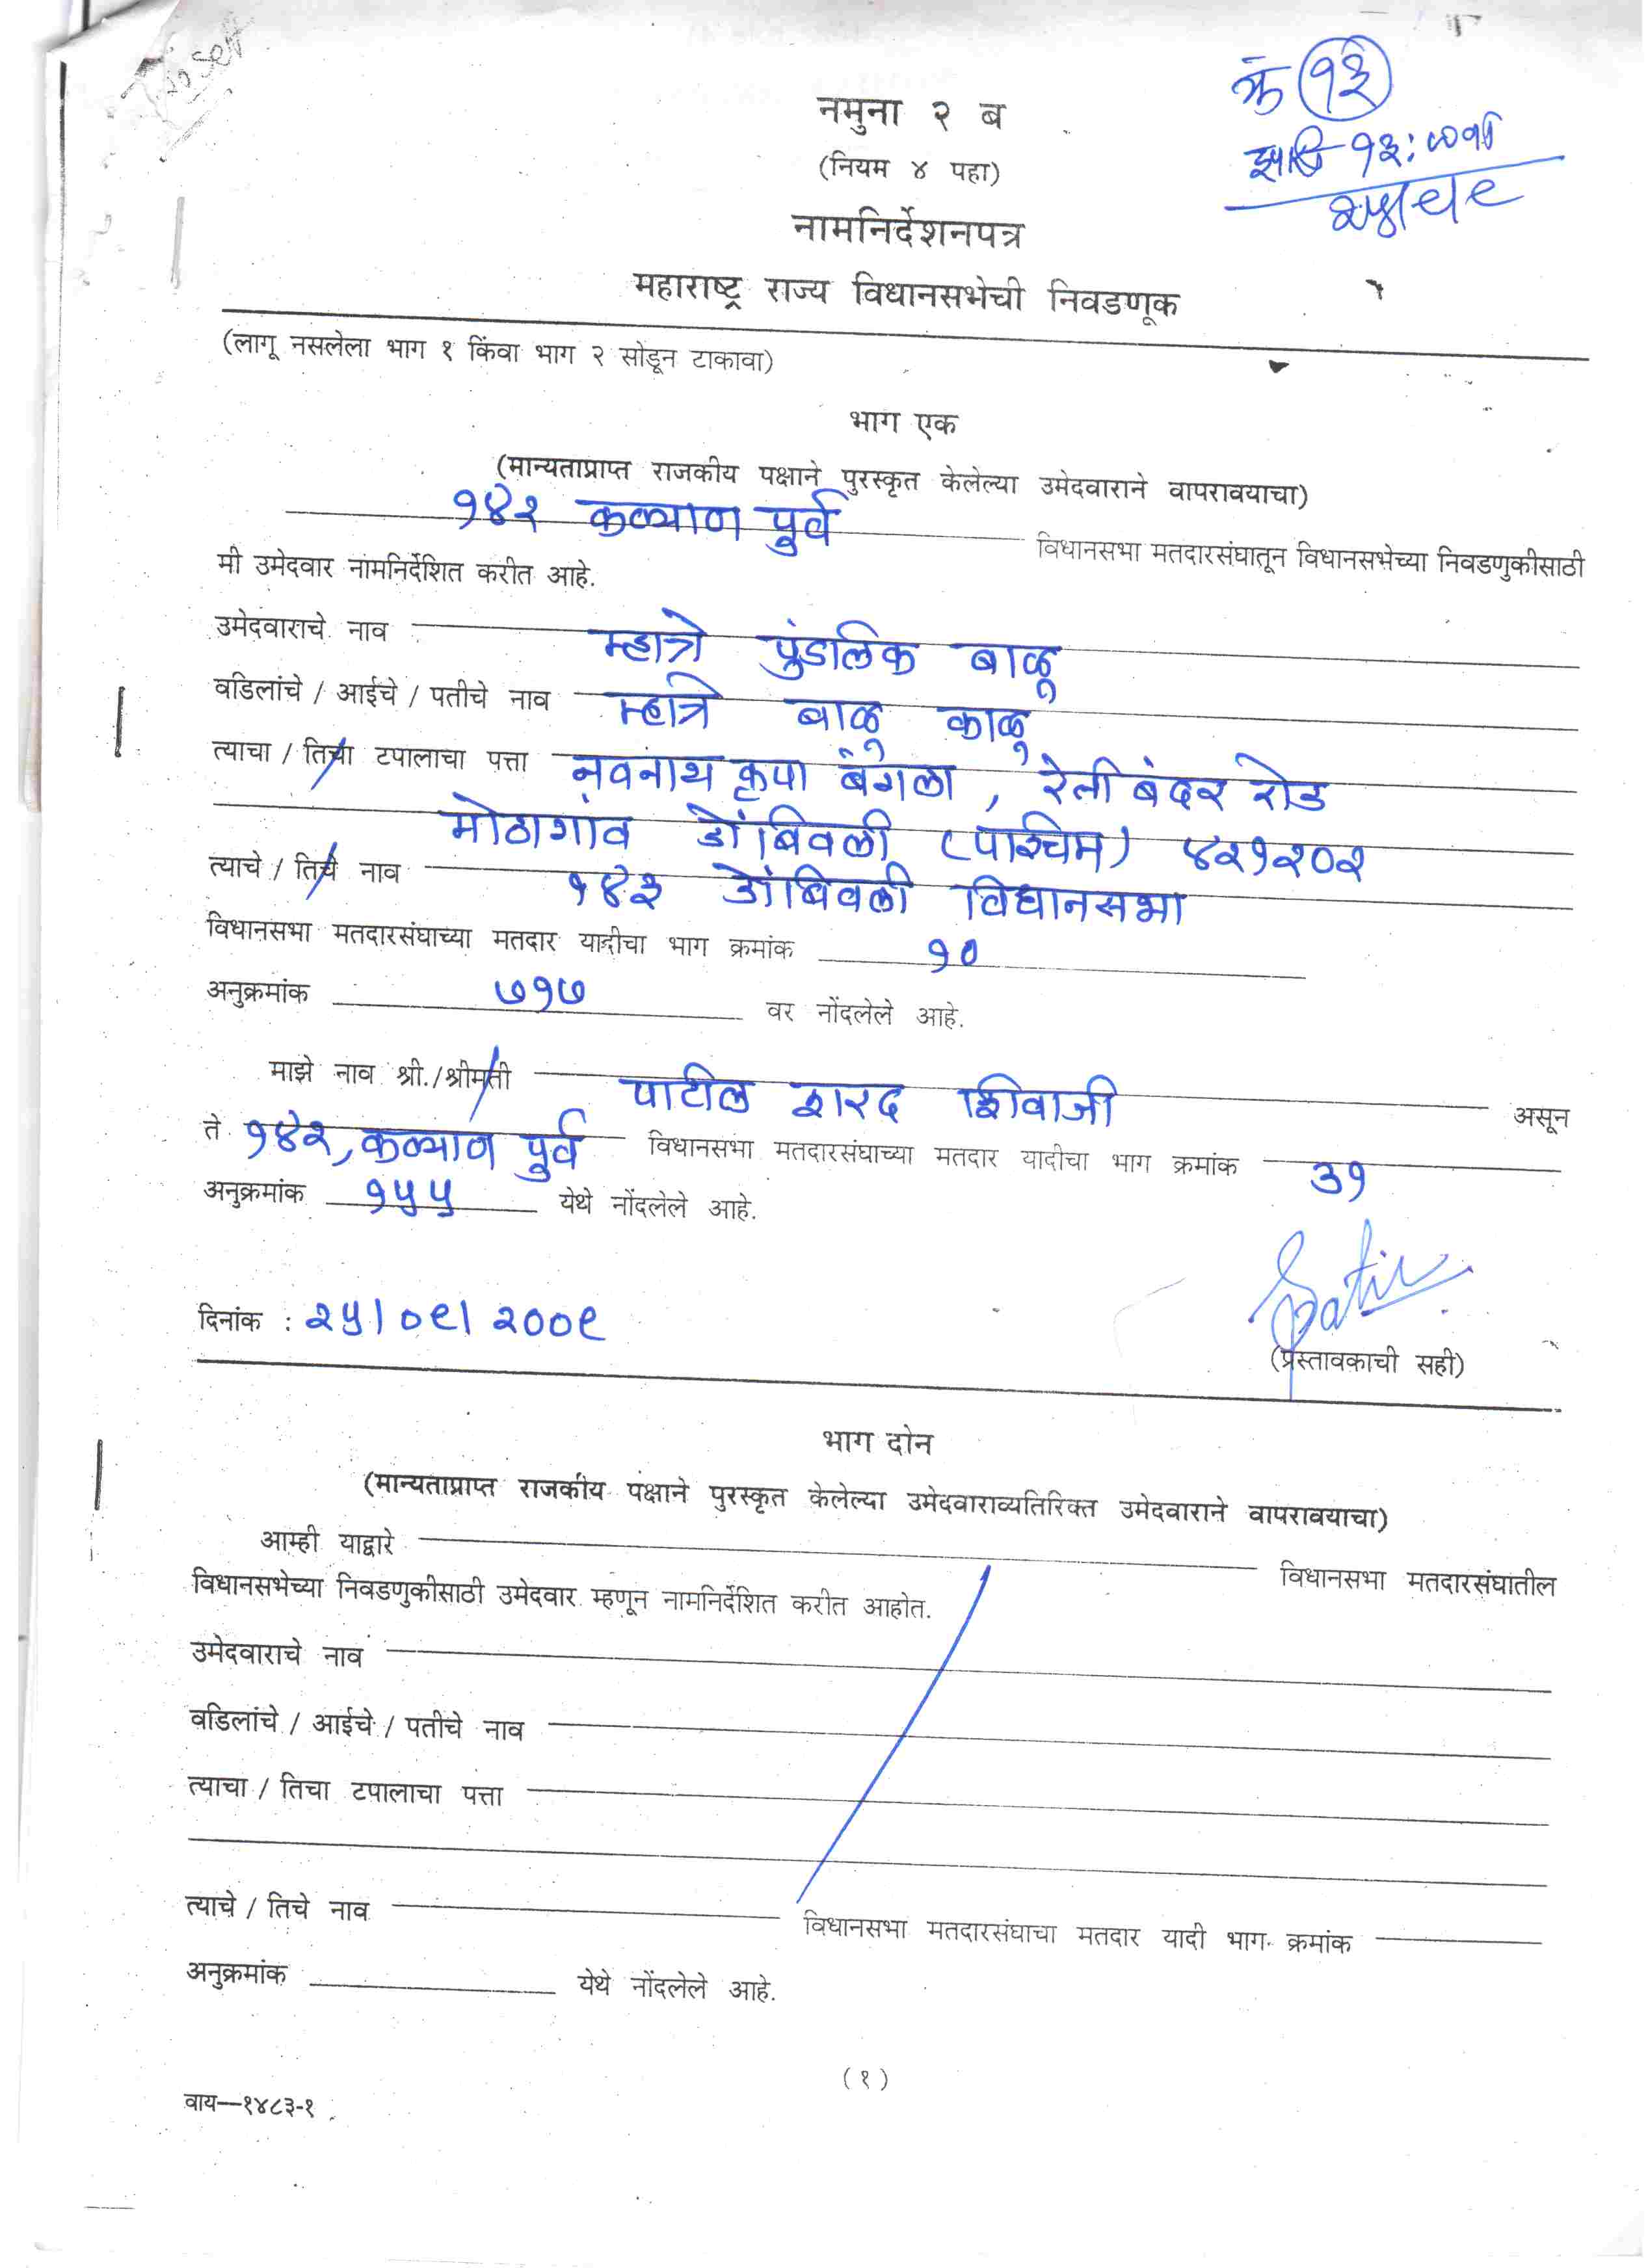 क्र १३
नमुना २ ब
(नियम ४ पहा)
नामनिर्देशनपत्र
महाराष्ट्र राज्य विधानसभेची निवडणूक
(लागू नसलेला भाग १ किंवा भाग २ सोडून टाकावा)
भाग एक
(मान्यताप्राप्त राजकीय पक्षाने पुरस्कृत केलेल्या उमेदवाराने वापरावयाचा)
१४२ कल्याण पुर्व विधानसभा मतदारसंघातून विधानसभेच्या निवडणुकीसाठी
मी उमेदवार नामनिर्देशित करीत आहे.
उमेदवाराचे नाव म्हात्रे पुंडलिक बाळू
वडिलांचे / आईचे / पतीचे नाव म्हात्रे बाळू काळू
त्याचा / तिचा टपालाचा पत्ता नवनाथ कृपा बंगला, रेती बंदर रोड
मोठागांव डोंबिवली (पश्चिम) ४२१२०२
त्याचे / तिचे नाव १४३ डोंबिवली विधानसभा
विधानसभा मतदारसंघाच्या मतदार यादीचा भाग क्रमांक १०
अनुक्रमांक ७१७ वर नोंदलेले आहे.
माझे नाव श्री./श्रीमती पाटील शरद शिवाजी असून
ते १४२, कल्याण पुर्व विधानसभा मतदारसंघाच्या मतदार यादीचा भाग क्रमांक ३१
अनुक्रमांक १५५ येथे नोंदलेले आहे.
दिनांक : २५/०९/२००९
(प्रस्तावकाची सही)
भाग दोन
(मान्यताप्राप्त राजकीय पक्षाने पुरस्कृत केलेल्या उमेदवाराव्यतिरिक्त उमेदवाराने वापरावयाचा)
आम्ही याद्वारे विधानसभा मतदारसंघातील
विधानसभेच्या निवडणुकीसाठी उमेदवार म्हणून नामनिर्देशित करीत आहोत.
उमेदवाराचे नाव
वडिलांचे / आईचे / पतीचे नाव
त्याचा / तिचा टपालाचा पत्ता
त्याचे / तिचे नाव विधानसभा मतदारसंघाचा मतदार यादी भाग क्रमांक
अनुक्रमांक येथे नोंदलेले आहे.
(१)
वाय—१४८३-१